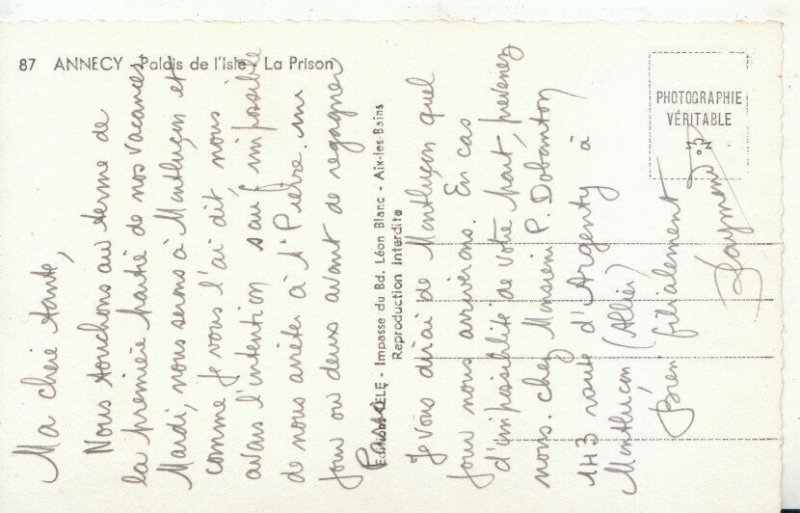 87 ANNECY - Palais de l'Isle - La Prison
PHOTOGRAPHIE
VÉRITABLE
Editions CELE - Impasse du Bd. Léon Blanc - Aix-les-Bains
Reproduction Interdite
Ma chère tante,
Nous touchons au terme de
la première partie de nos vacances
Mardi, nous serons à Montluçon et
comme je vous l'ai dit, nous
avons l'intention sauf impossibilité
de nous arrêter à St Pierre. un
jour ou deux avant de regagner
Je vous dirai de Montluçon quel
jour nous arriverons. En cas
d'impossibilité de votre part, prévenez
nous. chez Monsieur P. Dobanton
143 route d'Argenty à
Montluçon (Allier)
Bien filialement
Raymond